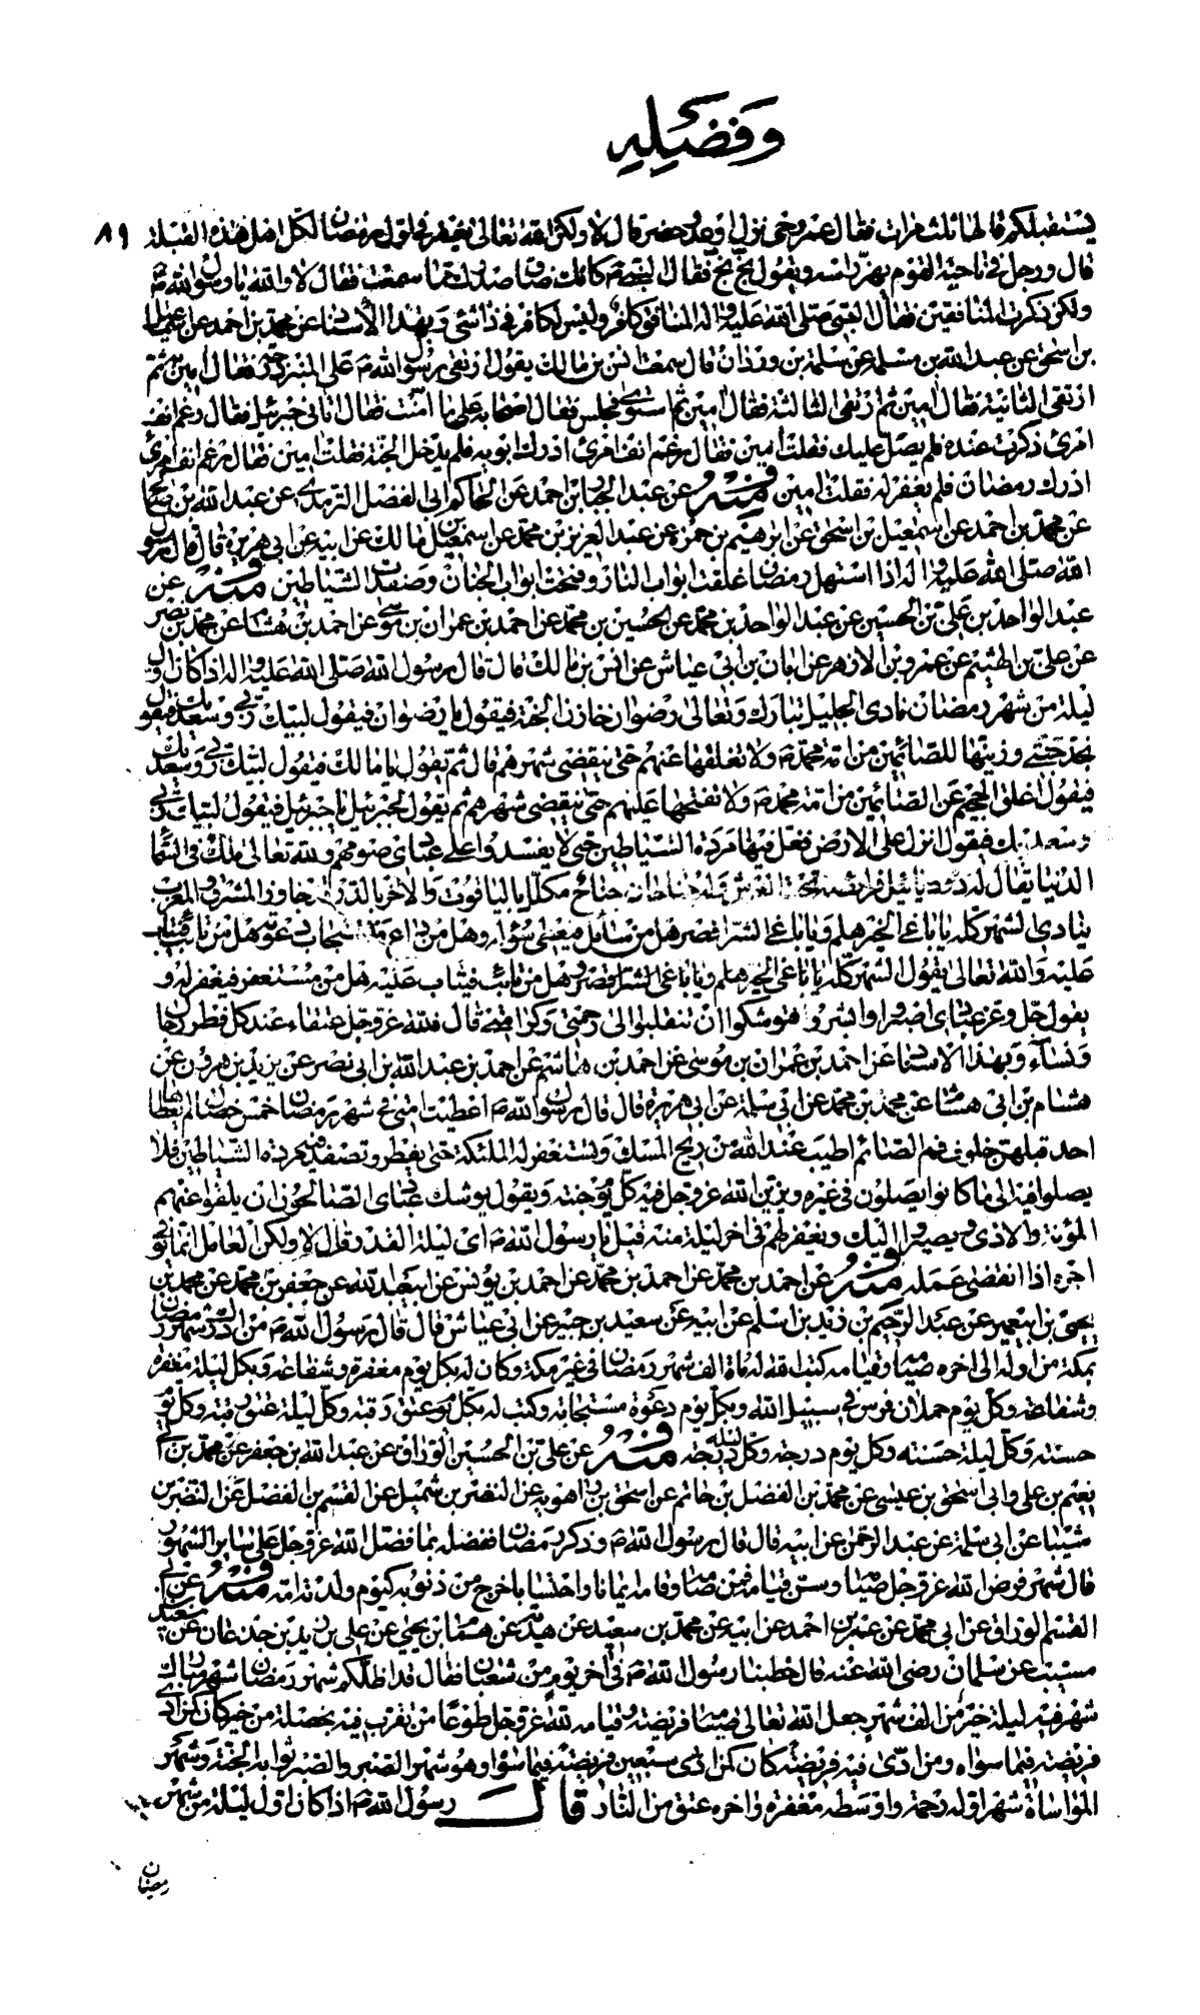 وفضيله
٨٩
يستقبلكم قالها ثلث مرات فقال عمر وحى نزل او عدو حضر قال لا ولكن الله تعالى يغفر فى اول رمضان لكل اهل هذه القبلة
قال ورجل فى ناحية القوم يهز راسه ويقول بخ بخ فقال النبى كانك ضاق صدرك مما سمعت فقال لا والله يا رسول الله
ولكن ذكرت المنافقين فقال النبى صلى الله عليه واله المنافق كافر وليس لكافر فى ذا شئ وبهذا الأسناد عن محمد بن احمد عن اسمعيل
بن اسحق عن عبد الله بن مسلمة عن سلمة بن وردان قال سمعت انس بن مالك يقول ارتقى رسول الله ص على المنبر درجة فقال امين ثم
ارتقى الثانية فقال امين ثم ارتقى الثالثة فقال امين ثم استوى فجلس فقال اصحابه على ما امنت فقال اتانى جبرئيل فقال رغم انف
امرئ ذكرت عنده فلم يصل عليك فقلت امين فقال رغم انف امرئ ادرك ابويه فلم يدخل الجنة فقلت امين فقال رغم انف امرئ
ادرك رمضان فلم يغفر له فقلت امين ومنه عن عبد الجبار بن احمد عن الحاكم ابى الفضل الترمذى عن عبد الله بن صالح
عن محمد بن احمد عن اسمعيل بن اسحق عن ابرهيم بن حمزة عن عبد العزيز بن محمد عن اسمعيل بن مالك عن ابيه عن ابى هريرة قال قال رسول
الله صلى الله عليه واله اذا استهل رمضان غلقت ابواب النار وفتحت ابواب الجنان وصفدت الشياطين ومنه عن
عبد الواحد بن على بن الحسين عن عبد الواحد بن محمد عن الحسين بن محمد عن احمد بن عمران بن موسى عن احمد بن هشام عن محمد بن نصر
عن على بن الهثيم عن عمرو بن الازهر عن ابان بن ابى عياش عن انس بن مالك قال قال رسول الله صلى الله عليه واله اذا كان اول
ليلة من شهر رمضان نادى الجليل تبارك وتعالى رضوان خازن الجنة فيقول يا رضوان فيقول لبيك ربى وسعديك فيقول
نجد جنتى وزينها للصائمين من امة محمد ص ولا تغلقها عنهم حتى ينقضى شهرهم قال ثم يقول يا مالك فيقول لبيك ربى وسعديك
فيقول اغلق الجحيم عن الصائمين من امة محمد ص ولا تفتحها عليهم حتى ينقضى شهرهم ثم يقول لجبرئيل يا جبرئيل فيقول لبيك ربى
وسعديك فيقول انزل على الارض فغل فيها مردة الشياطين حتى لا يفسدوا على عبادى صومهم ولله تعالى ملك فى السماء
الدنيا يقال له فرائصه تحت العرش وله جناحان جناح مكلل بالياقوت والاخر بالدر قد جاوز المشرق والمغرب
ينادى الشهر كله يا باغى الخير هلم ويا باغى الشر اقصر هل من سائل فيعطى سؤله وهل من داع يستجاب دعوته هل من تائب فيتاب
عليه والله تعالى يقول الشهر كله يا باغى الخير هلم ويا باغى الشر اقصر هل من تائب فيتاب عليه هل من مستغفر فيغفر له و
يقول جل وعز عبادى اصبروا وابشروا فتوشكوا ان تنقلبوا الى رحمتى وكرامتى قال فلله عز وجل عتقاء عند كل فطر رجالا
ونساء وبهذا الاسناد عن احمد بن عمران بن موسى عن احمد بن هاشم عن احمد بن عبد الله بن ابى نصر عن يزيد بن هرون عن
هشام بن ابى هشام عن محمد بن محمد عن ابى سلمة عن ابى هريرة قال قال رسول الله ص اعطيت امتى فى شهر رمضان خمس خصال لم يعطها
احد قبلهن خلوف فم الصائم اطيب عند الله من ريح المسك ويستغفر له الملئكة حتى يفطر وتصفد فيه مردة الشياطين فلا
يصلوا فيه الى ما كانوا يصلون فى غيره ويزين الله عز وجل فيه كل يوم جنته ويقول يوشك عبادى الصالحون ان يلقوا عنهم
المؤنة والاذى ويصيروا اليك ويغفر لهم فى اخر ليلة منه قيل يا رسول الله ص اى ليلة القدر قال لا ولكن العامل انما يوفى
اجره اذا انقضى عمله ومنه عن احمد بن محمد عن احمد بن محمد عن احمد بن يونس عن ابى عبد الله عن جعفر بن محمد عن محمد بن
يحيى بن ابى عمير عن عبد الرحيم بن زيد بن اسلم عن ابيه عن سعيد بن جبير عن ابى عياش قال قال رسول الله ص من ادرك شهر رمضان
بمكة من اوله الى اخره صيامه وقيامه كتب الله له مأة الف شهر رمضان فى غير مكة وكان له بكل يوم مغفرة وشفاعة وبكل ليلة مغفرة
وشفاعة وبكل يوم حملان فرس فى سبيل الله وبكل يوم دعوة مستجابة وكتب له بكل يوم عتق رقبة وكل ليلة عتق رقبة وكل يوم
حسنة وكل ليلة حسنة وكل يوم درجة وكل ليلة درجة ومنه عن على بن الحسين الوراق عن عبد الله بن جعفر عن محمد بن
نعيم بن على وابى اسحق بن عيسى عن محمد بن الفضل بن حاتم عن اسحق بن راهويه عن النضر بن شميل عن القسم بن الفضل عن النضر بن
شيبان عن ابى سلمة عن عبد الرحمن عن ابيه قال قال رسول الله ص وذكر رمضان ففضله بما فضل الله عز وجل على سائر الشهور
قال شهر فرض الله عز وجل صيامه وسن قيامه فمن صامه وقامه ايمانا واحتسابا خرج من ذنوبه كيوم ولدته امه ومنه عن ابى
القسم الوراق عن ابى محمد عن عمر بن احمد عن ابيه عن محمد بن سعيد عن هدبة عن همام بن يحيى عن على بن زيد بن جدعان عن سعيد بن
مسيب عن سلمان رضى الله عنه قال خطبنا رسول الله ص فى آخر يوم من شعبان فقال قد اظلكم شهر رمضان شهر مبارك
شهر فيه ليلة خير من الف شهر جعل الله تعالى صيامه فريضة وقيامه لله عز وجل طوعا من تقرب فيه بخصلة من خير كان كمن ادى
فريضة فيما سواه ومن ادى فيه فريضة كان كمن ادى سبعين فريضة فيما سواه وهو شهر الصبر والصبر ثوابه الجنة وشهر
المواساة شهر اوله رحمة واوسطه مغفرة واخره عتق من النار قال رسول الله ص اذا كان اول ليلة من شهر
رمضان